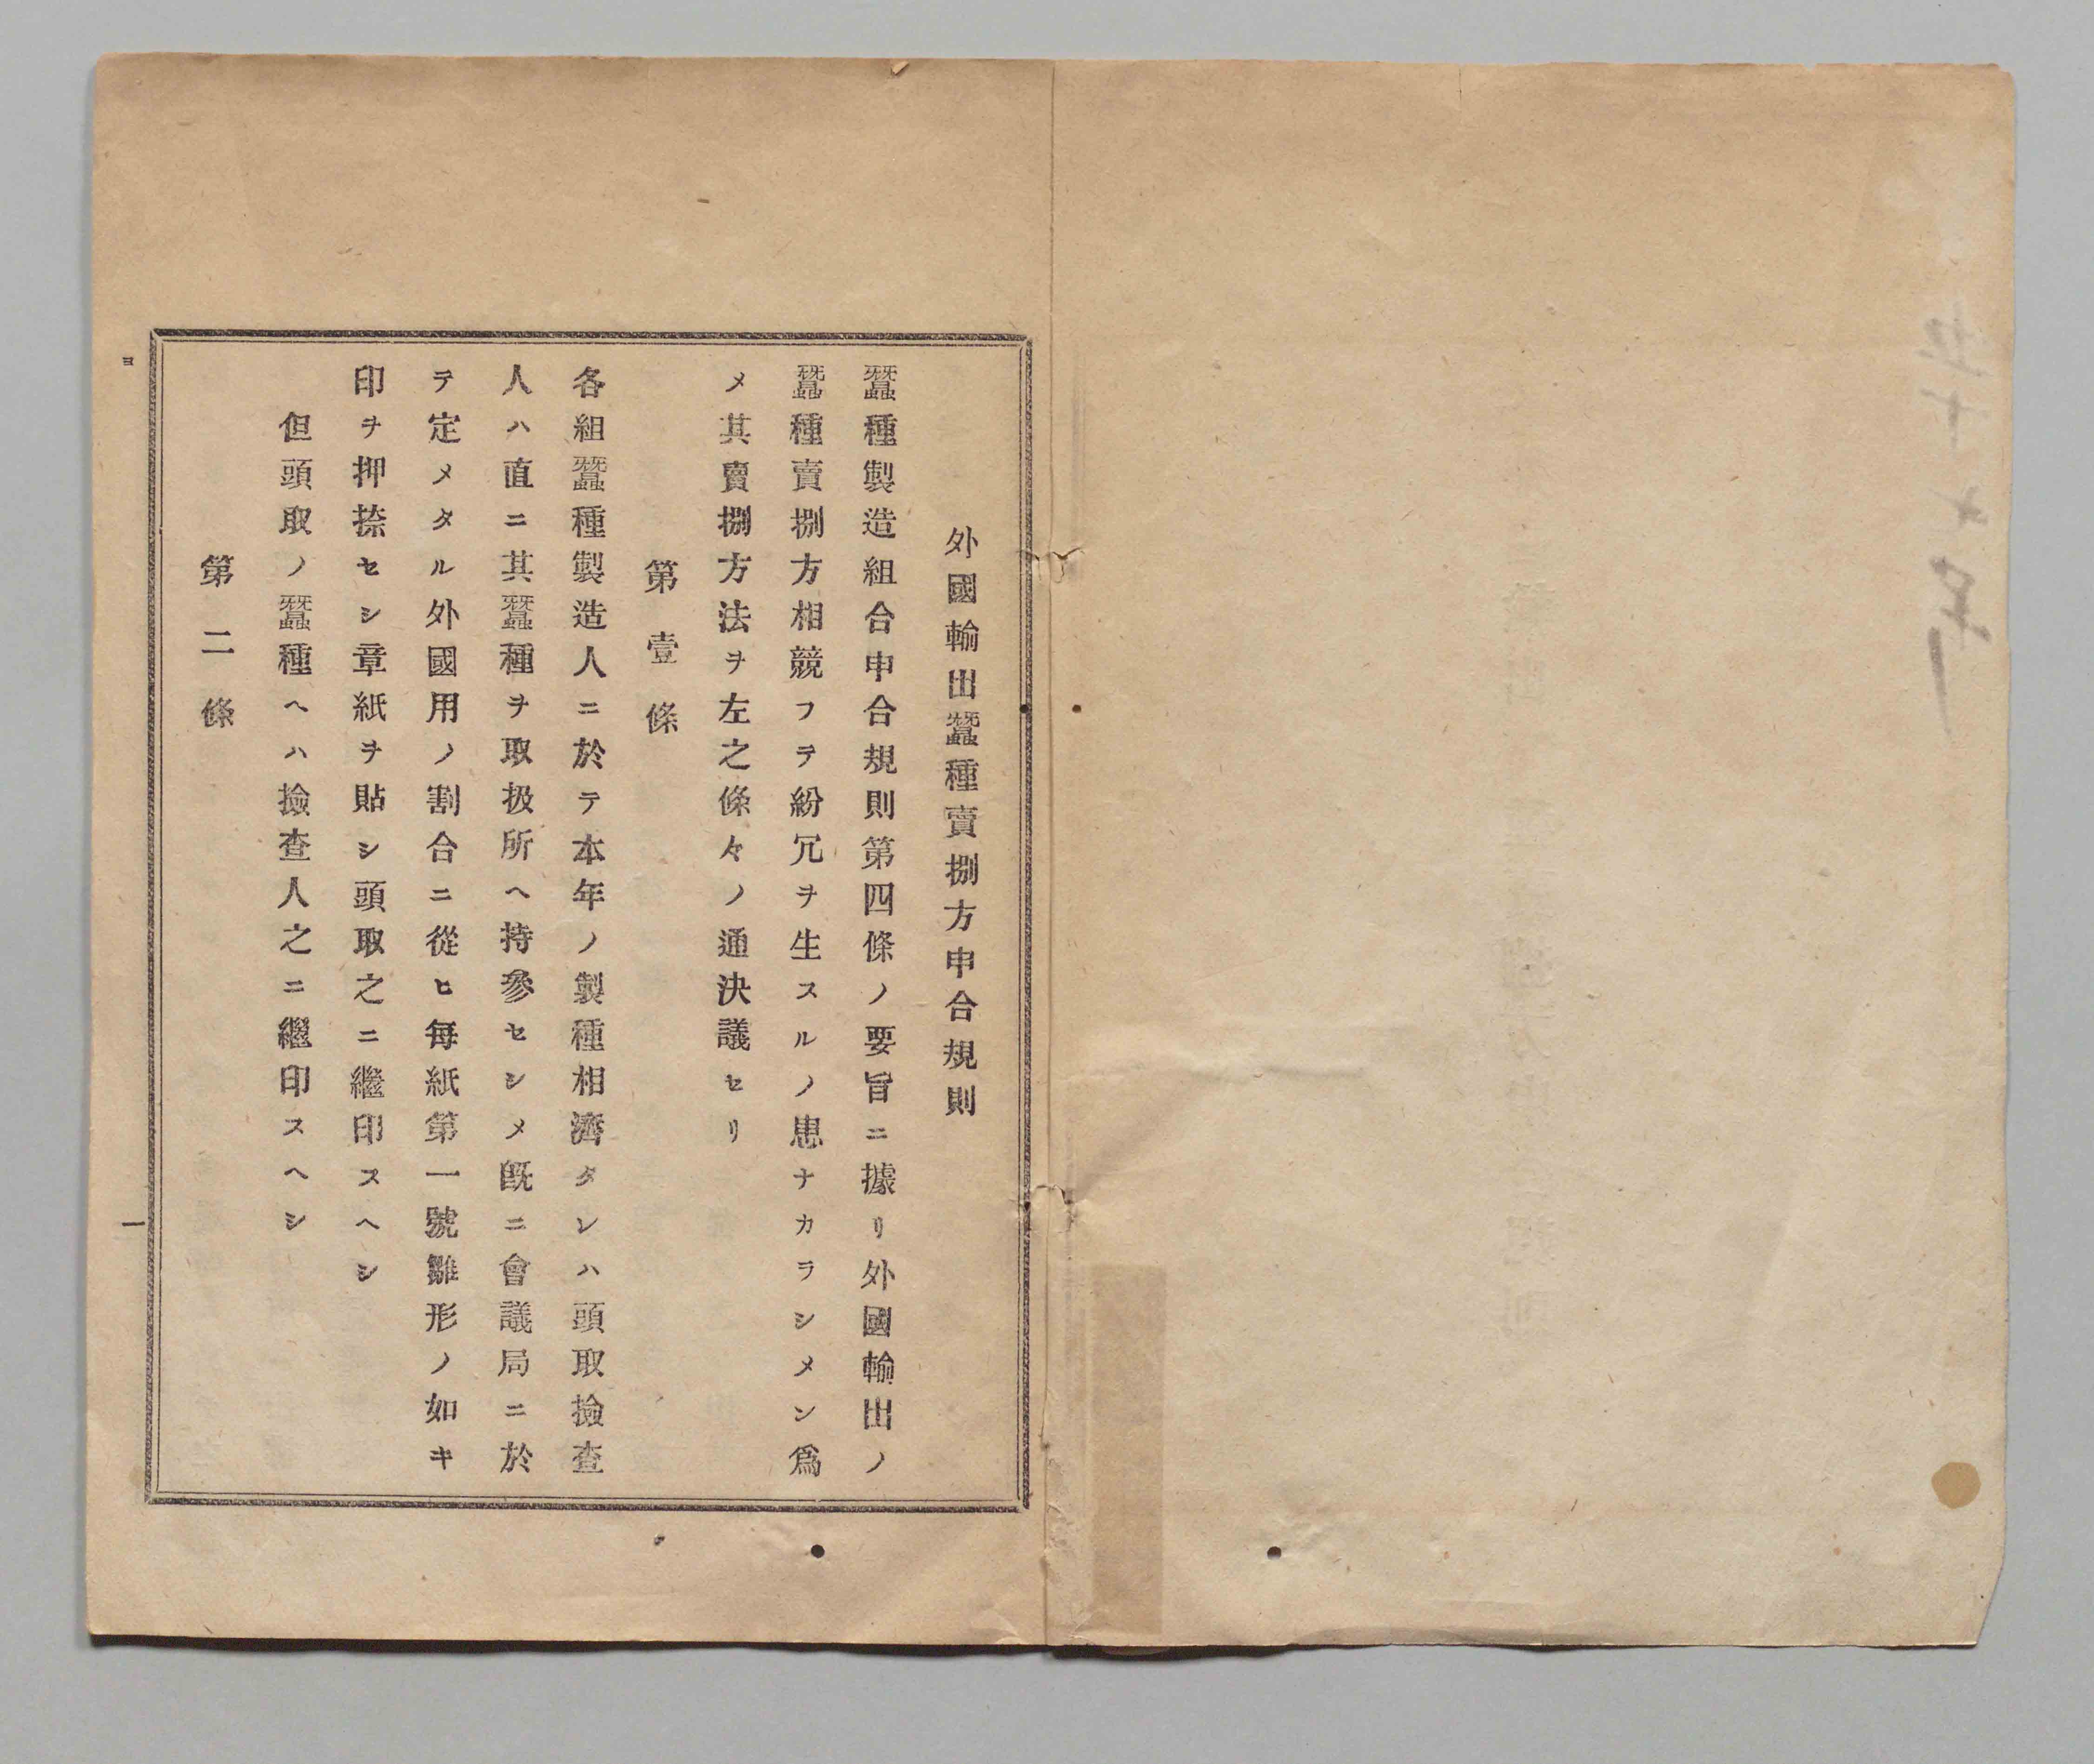 外國輸出蠶種賣捌方申合規則
蠶種製造組合申合規則第四條ノ要旨ニ據リ外國輸出ノ
蠶種賣捌方相競フテ紛冗ヲ生スルノ患ナカラシメン爲
メ其賣捌方法ヲ左之條々ノ通決議セリ
第壹條
各組蠶種製造人ニ於テ本年ノ製種相濟タレハ頭取撿査
人ハ直ニ其蠶種ヲ取扱所ヘ持參セシメ旣ニ會議局ニ於
テ定メタル外國用ノ割合ニ從ヒ每紙第一號雛形ノ如キ
印ヲ押捺セシ章紙ヲ貼シ頭取之ニ繼印スヘシ
但頭取ノ蠶種ヘハ撿査人之ニ繼印スヘシ
第二條
ヨ
一